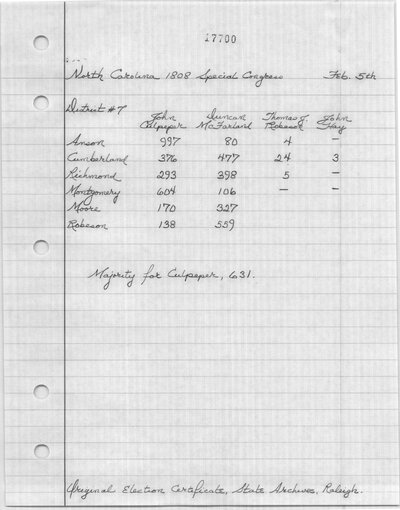 17700
North Carolina 1808 Special Congress Feb. 5th
District #7
John Culpeper Duncan McFarland Thomas J. Robeson John Hay
Anson 997 80 4 –
Cumberland 376 477 24 3
Richmond 293 398 5 –
Montgomery 604 106 – –
Moore 170 327
Robeson 138 559
Majority for Culpeper, 631.
Original Election Certificate, State Archives, Raleigh.